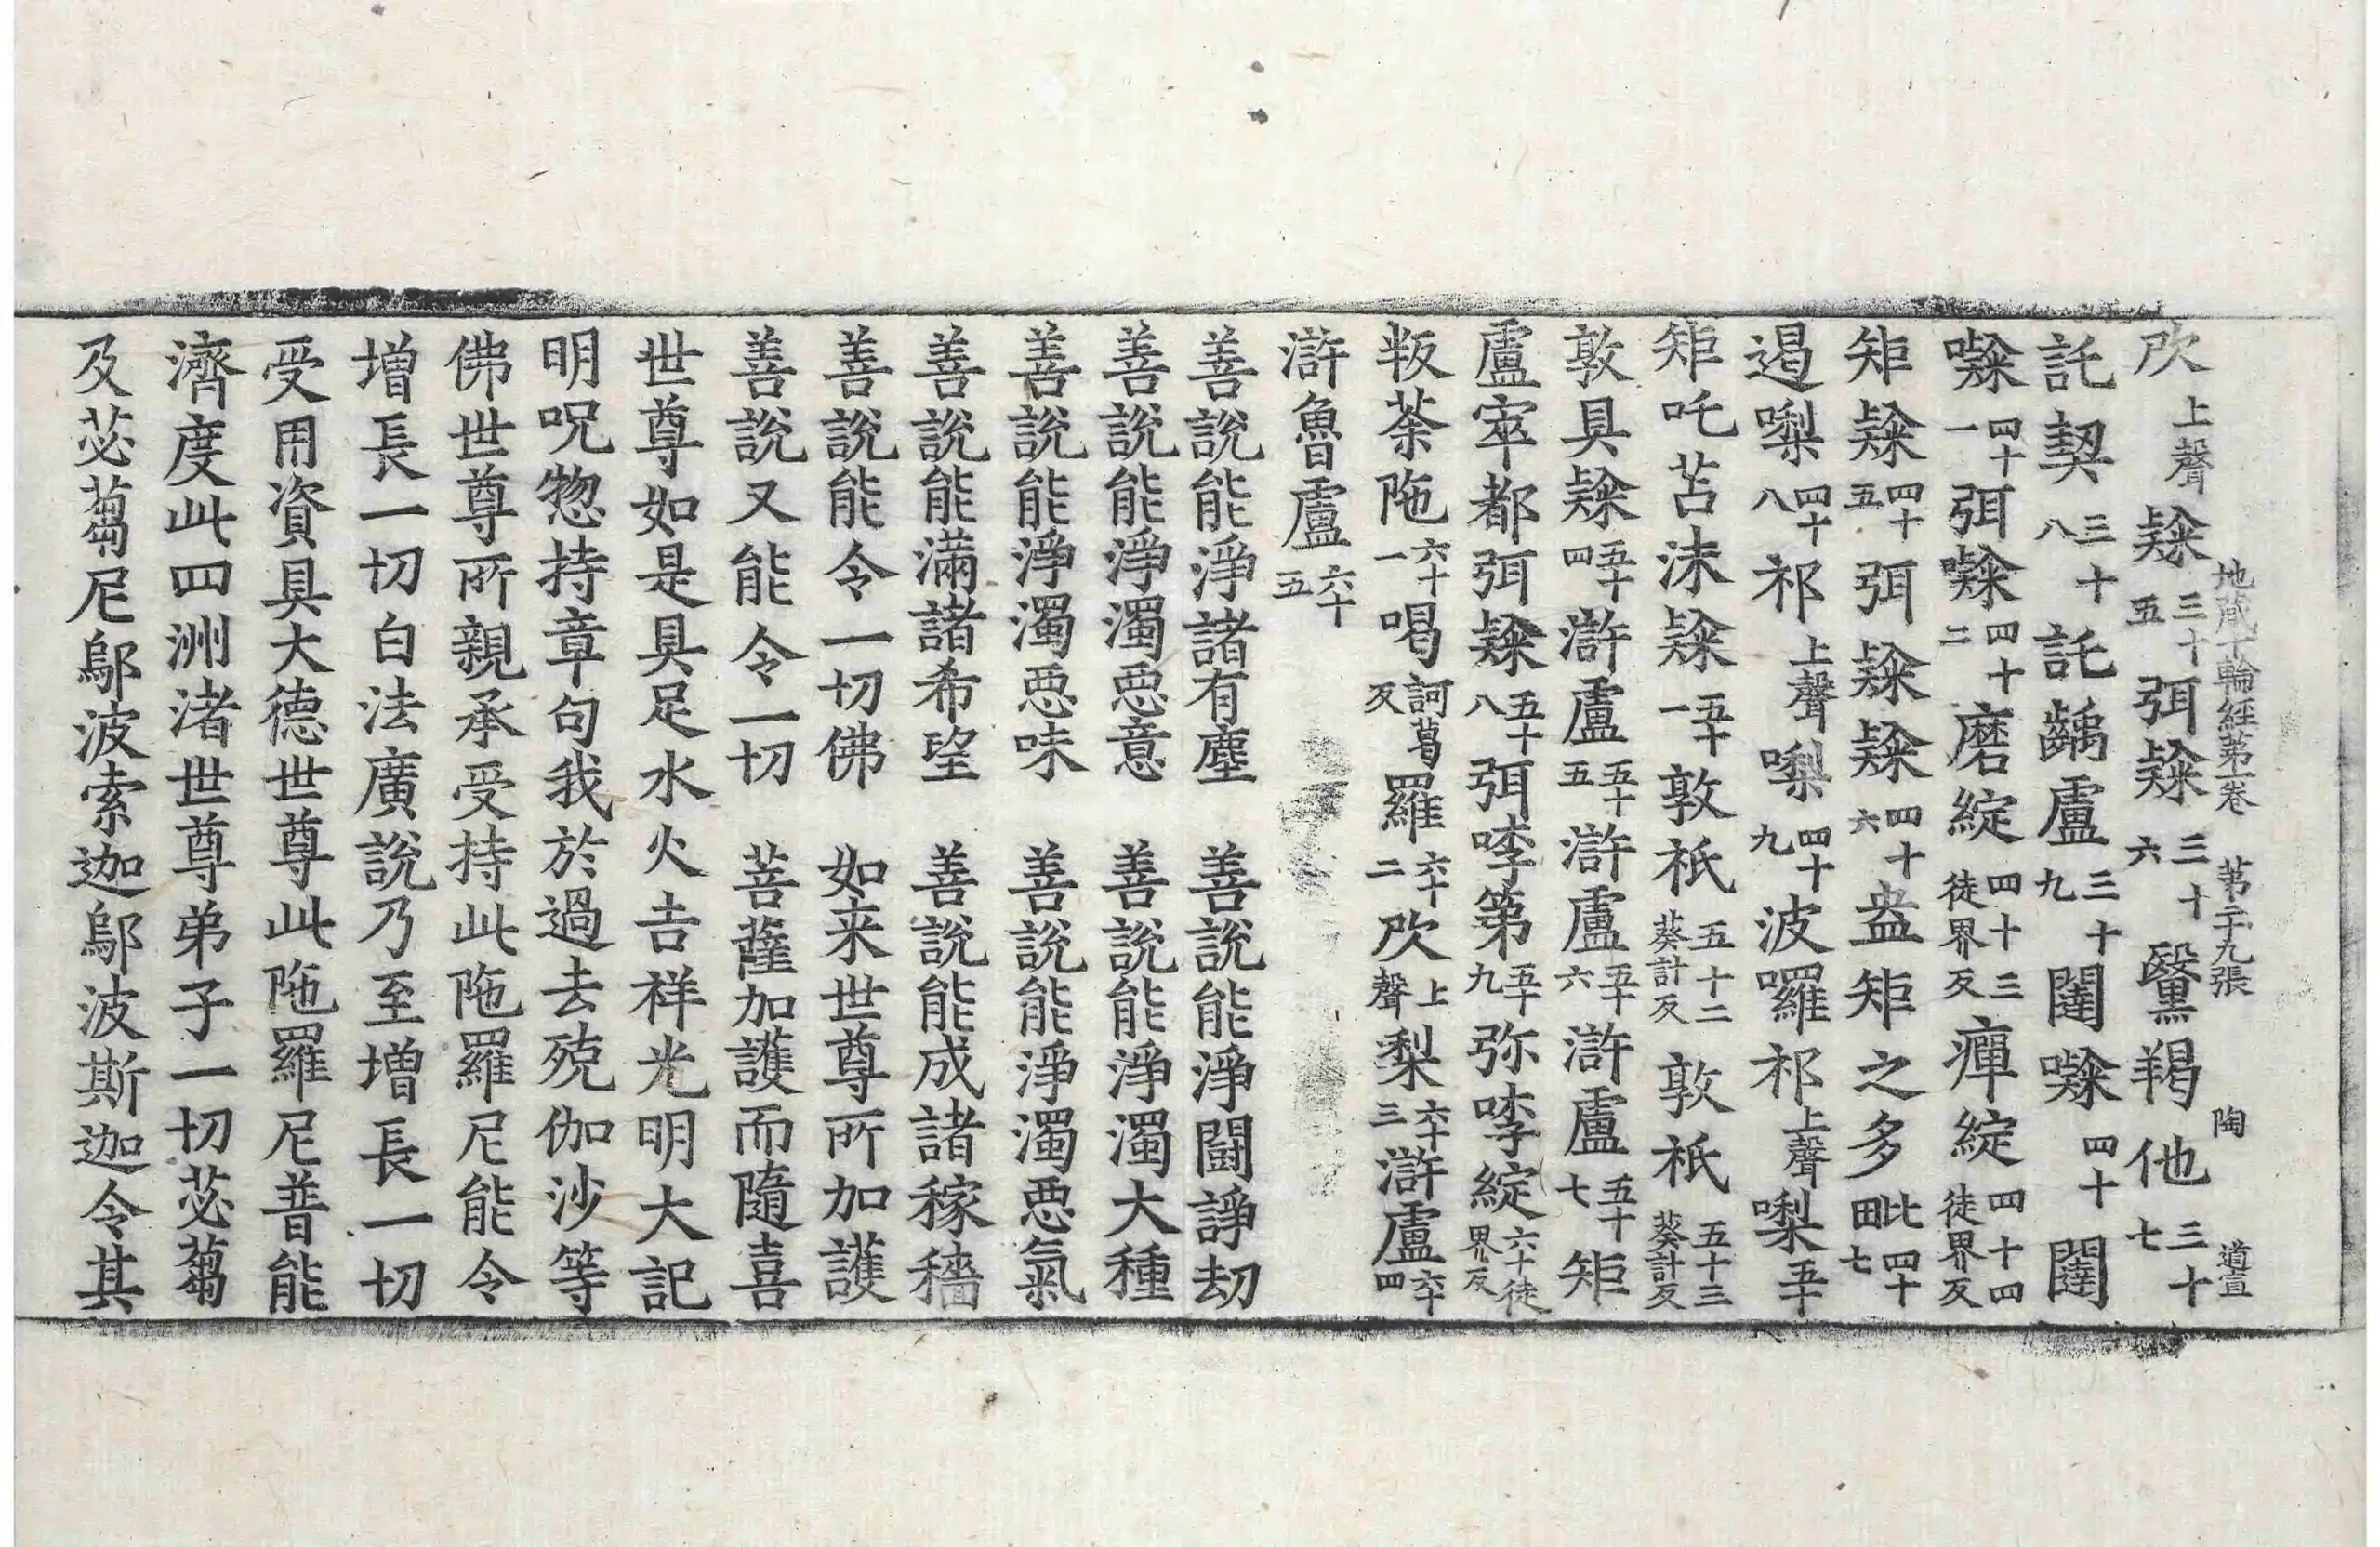 地蔵十輪經第一卷　苐二十九張　陶　道宣
㰤上聲隸三十五弭隸三十六黳羯他三十七
託契三十八託齲盧三十九闥㘑四十闥
㘑四十一弭㘑四十二磨綻徒界反四十三癉綻徒界反四十四
矩隸四十五弭隸隸四十六盎矩之多毗四十七
遏㗚四十八祁上聲㗚四十九波囉祁上聲㗚五十
矩吒苫沫隸五十一敦祇葵計反五十二敦祇葵計反五十三
敦具隸五十四滸盧五十五滸盧五十六滸盧五十七矩
盧窣都弭隸五十八弭㖫第五十九弥㖫綻六十徒界反
叛荼陁六十一喝訶葛反羅六十二㰤上聲梨六十三滸盧六十四
滸魯盧六十五
善說能淨諸有塵　善說能淨鬪諍劫
善說能淨濁惡意　善說能淨濁大種
善說能淨濁惡味　善說能淨濁惡氣
善說能滿諸希望　善說能成諸稼穡
善說能令一切佛　如来世尊所加護
善說又能令一切　菩薩加護而隨喜
世尊如是具足水火吉祥光明大記
明呪惣持章句我於過去殑伽沙等
佛世尊所親承受持此陁羅尼能令
增長一切白法廣說乃至增長一切
受用資具大德世尊此陁羅尼普能
濟度此四洲渚世尊弟子一切苾蒭
及苾蒭尼鄔波索迦鄔波斯迦令其